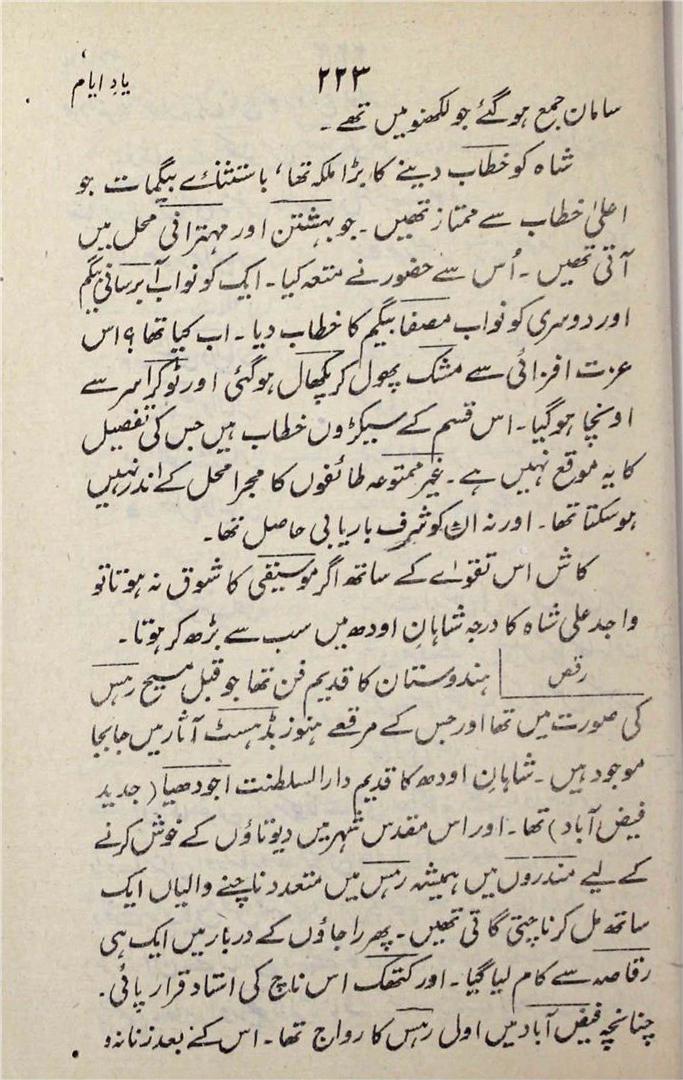 ۲۲۳
یادِ ایام
سامان جمع ہوگئے جو لکھنو میں تھے۔
شاہ کو خطاب دینے کا بڑا ملکہ تھا، باستثنائے بیگمات جو
اعلیٰ خطاب سے ممتاز تھیں۔ جو بہشتن اور مہترانی محل میں
آتی تھیں۔ اُس سے حضور نے متعہ کیا۔ ایک کو نواب آبرسانی بیگم
اور دوسری کو نواب مصفا بیگم کا خطاب دیا۔ اب کیا تھا؟ اس
عزت افزائی سے مشک پھول کر پکھال ہوگئی اور ٹوکرا سر سے
اونچا ہوگیا۔ اس قسم کے سیکڑوں خطاب ہیں جس کی تفصیل
کا یہ موقع نہیں ہے۔ غیر ممتوعہ طائفوں کا مجرا محل کے اندر نہیں
ہو سکتا تھا۔ اور نہ ان کو شرف باریابی حاصل تھا۔
کاش اس تقوے کے ساتھ اگر موسیقی کا شوق نہ ہوتا تو
واجد علی شاہ کا درجہ شاہانِ اودھ میں سب سے بڑھ کر ہوتا۔
رقص ہندوستان کا قدیم فن تھا جو قبل مسیح رہس
کی صورت میں تھا اور جس کے مرقعے ہنوز بڈھسٹ آثار میں جابجا
موجود ہیں۔ شاہانِ اودھ کا قدیم دارالسلطنت اجودھیا (جدید
فیض آباد) تھا۔ اور اس مقدس شہر میں دیوتاؤں کے خوش کرنے
کے لیے مندروں میں ہمیشہ رہس میں متعدد ناچنے والیاں ایک
ساتھ مل کر ناچتی گاتی تھیں۔ پھر راجاؤں کے دربار میں ایک ہی
رقاصہ سے کام لیا گیا۔ اور کتھک اس ناچ کی استاد قرار پائی۔
چنانچہ فیض آباد میں اول رہس کا رواج تھا۔ اس کے بعد زنانہ و